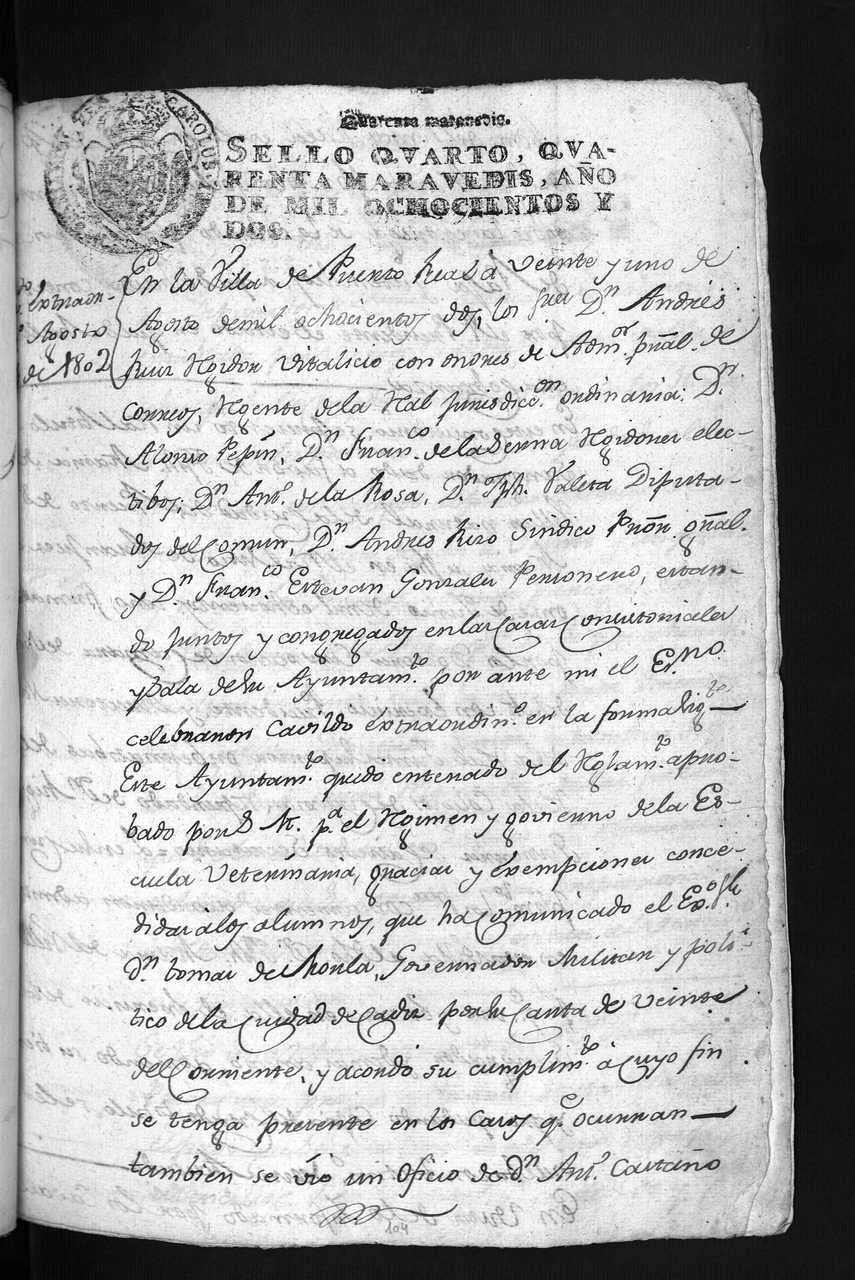 Quarenta maravedis.
SELLO QVARTO, QVA-
RENTA MARAVEDIS, AÑO
DE MIL OCHOCIENTOS Y
DOS.
CAROLUS
extraor-
Agosto
de 1802
En la Villa de Puerto Real à veinte y uno de
Agosto de mil ochocientos dos, los Dn. Andrés
Ruiz Rgidor vitalicio con onores de Admor. pñal. de
correos, Rgente de la Ral jurisdiccon. ordinaria: Dn.
Alonso Pepin, Dn. Franco. de la Serna Rgidores elec-
tibos; Dn. Antº. de la Rosa, Dn. Jph. Valera Diputa-
dos del Comun, Dn. Andres Rizo Sindico Prõr. gñal.
y Dn. Franco. Estevan Gonzalez Personero, estan-
do juntos y congregados en las Casas Consistoriales
y Sala de su Ayuntamto. por ante mi el Esno.
celebraron Cavildo extraordino. en la forma sigte
Este Ayuntamto. quedo enterado del Rglamto. apro-
bado por S. M. pa. el Rgimen y govierno de la Es-
cuela Veterinaria, gracias y exempciones conce-
didas á los alumnos, que ha comunicado el Exmo. Sr.
Dn. tomas de Morla, Governador Militar y poli-
tico de la Ciudad de Cadiz por su Carta de veinte
del Corriente, y acordó su cumplimto. á cuyo fin
se tenga presente en los casos qe. ocurran
tambien se vio un oficio de Dn. Antº. Cantaño
104